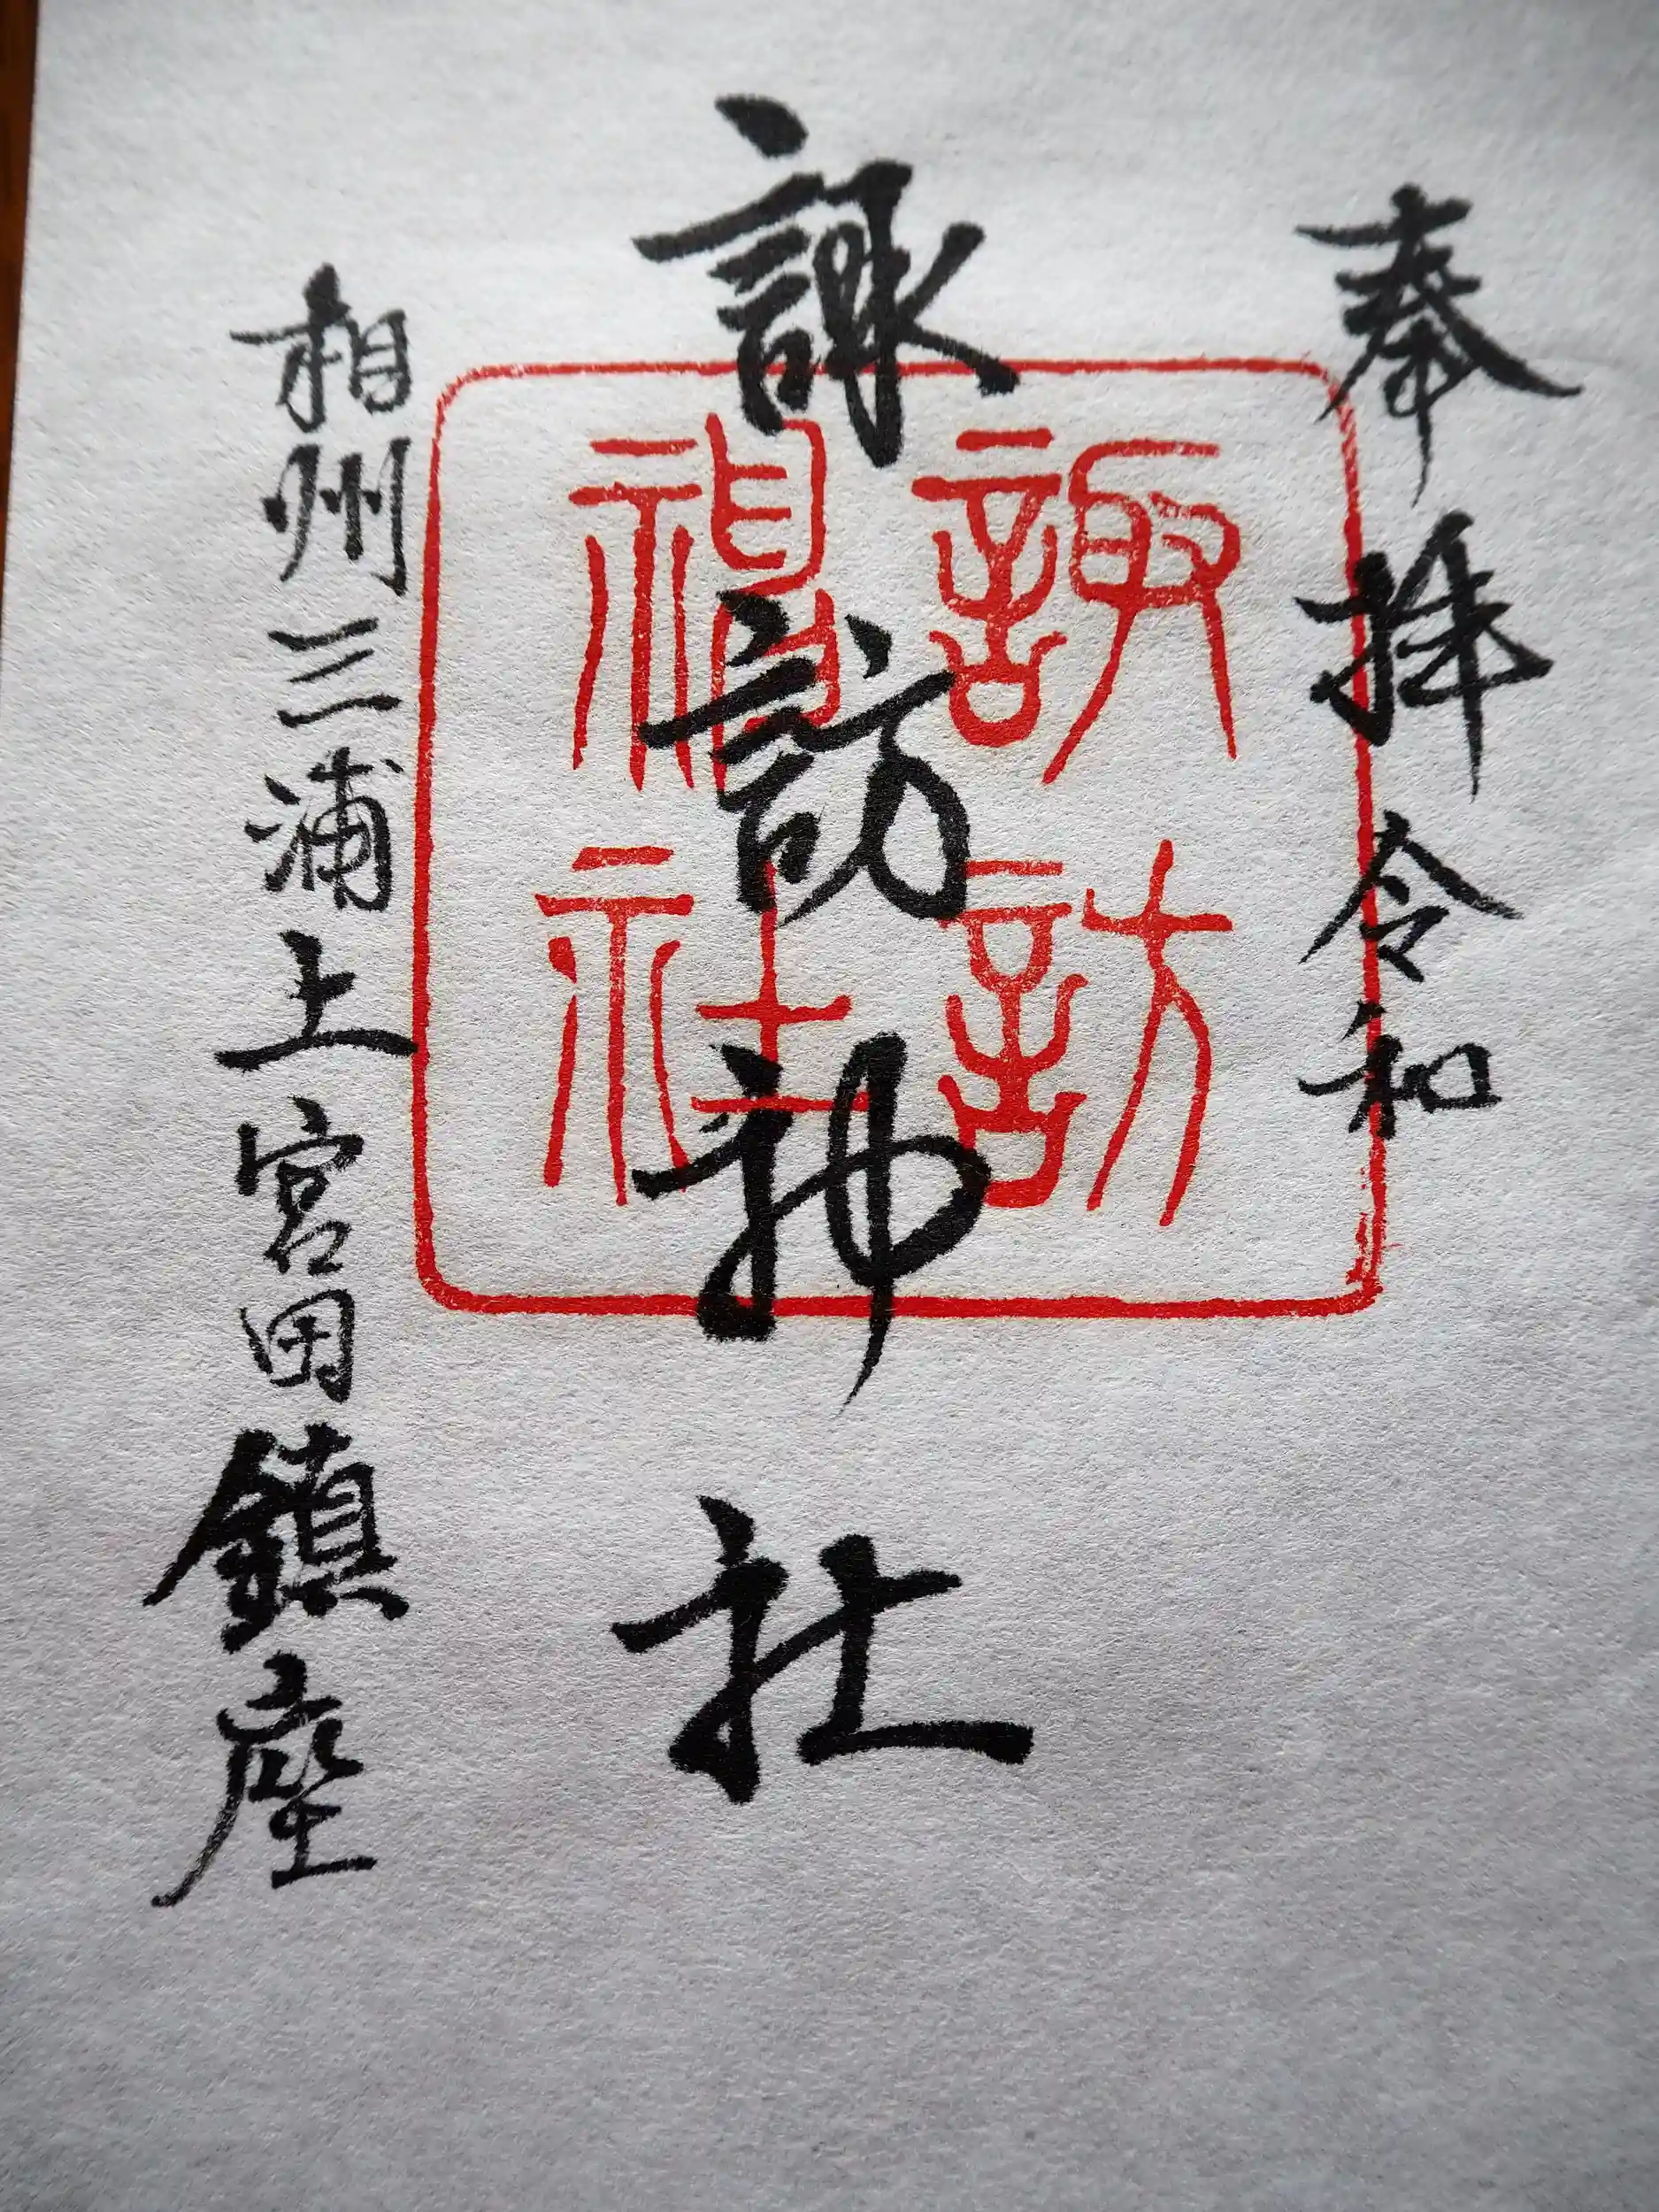 奉拝 令和
諏訪神社
諏訪
神社
相州三浦上宮田鎮座